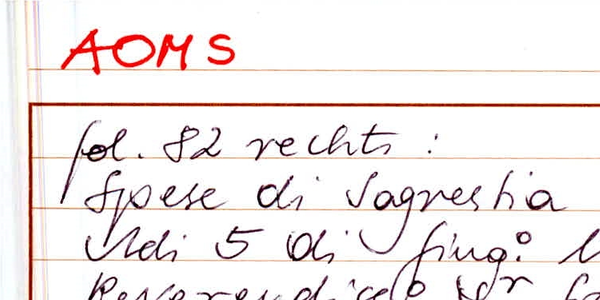 AOMS
fol. 82 rechts :
Spese di Sagrestia
Adi 5 di Giug: